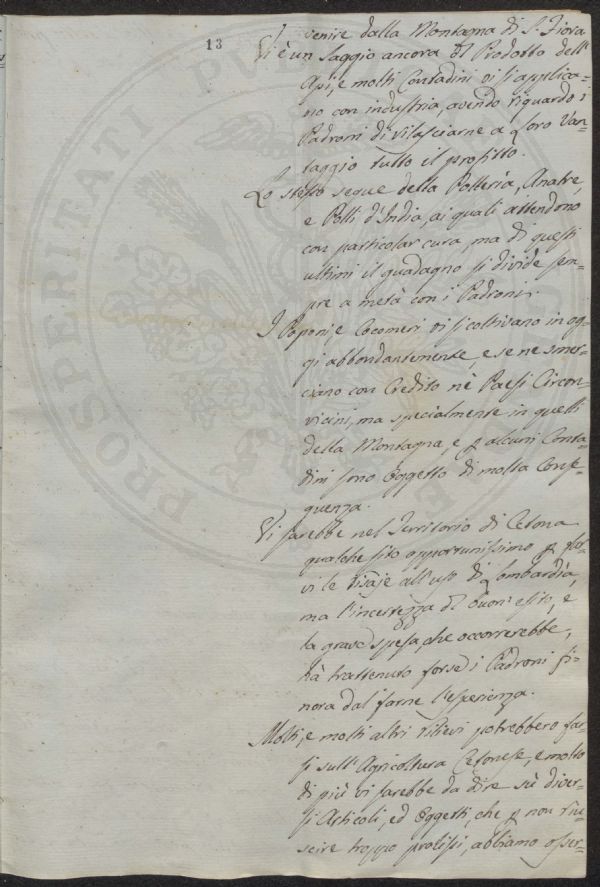 13
venire dalla Montagna di S. Fiora
Vi è un Saggio ancora del Prodotto dell'
Api, e molti Contadini vi si applica-
no con industria, avendo riguardo i
Padroni di rilasciarne a Loro Van-
taggio tutto il profitto.
Lo stesso segue della Polleria, Anatre,
e Polli d'India, ai quali attendono
con particolar cura, ma di questi
ultimi il guadagno si divide sem-
pre a metà con i Padroni.
I Poponi, e Cocomeri vi si coltivano in og-
gi abbondantemente, e se ne smer-
ciano con Credito nè Paesi Circon-
vicini, ma specialmente in quelli
della Montagna, e p alcuni Conta-
dini sono Oggetto di molta Conse-
guenza.
Vi sarebbe nel Territorio di Cetona
qualche sito opportunissimo p far-
vi le Risaje all'uso di Lombardia,
ma l'incertezza del buon'esito, e
la grave spesa, che occorrerebbe,
hà trattenuto forse i Padroni fi-
nora dal farne l'esperienza.
Molti, e molti altri rilievi potrebbero far-
si sull'Agricoltura Cetonese, e molto
di più vi sarebbe da dire sù diver-
si Articoli, ed Oggetti, che p non riu-
scire troppo prolissi, abbiamo osser-
PROSPERITATI PUB